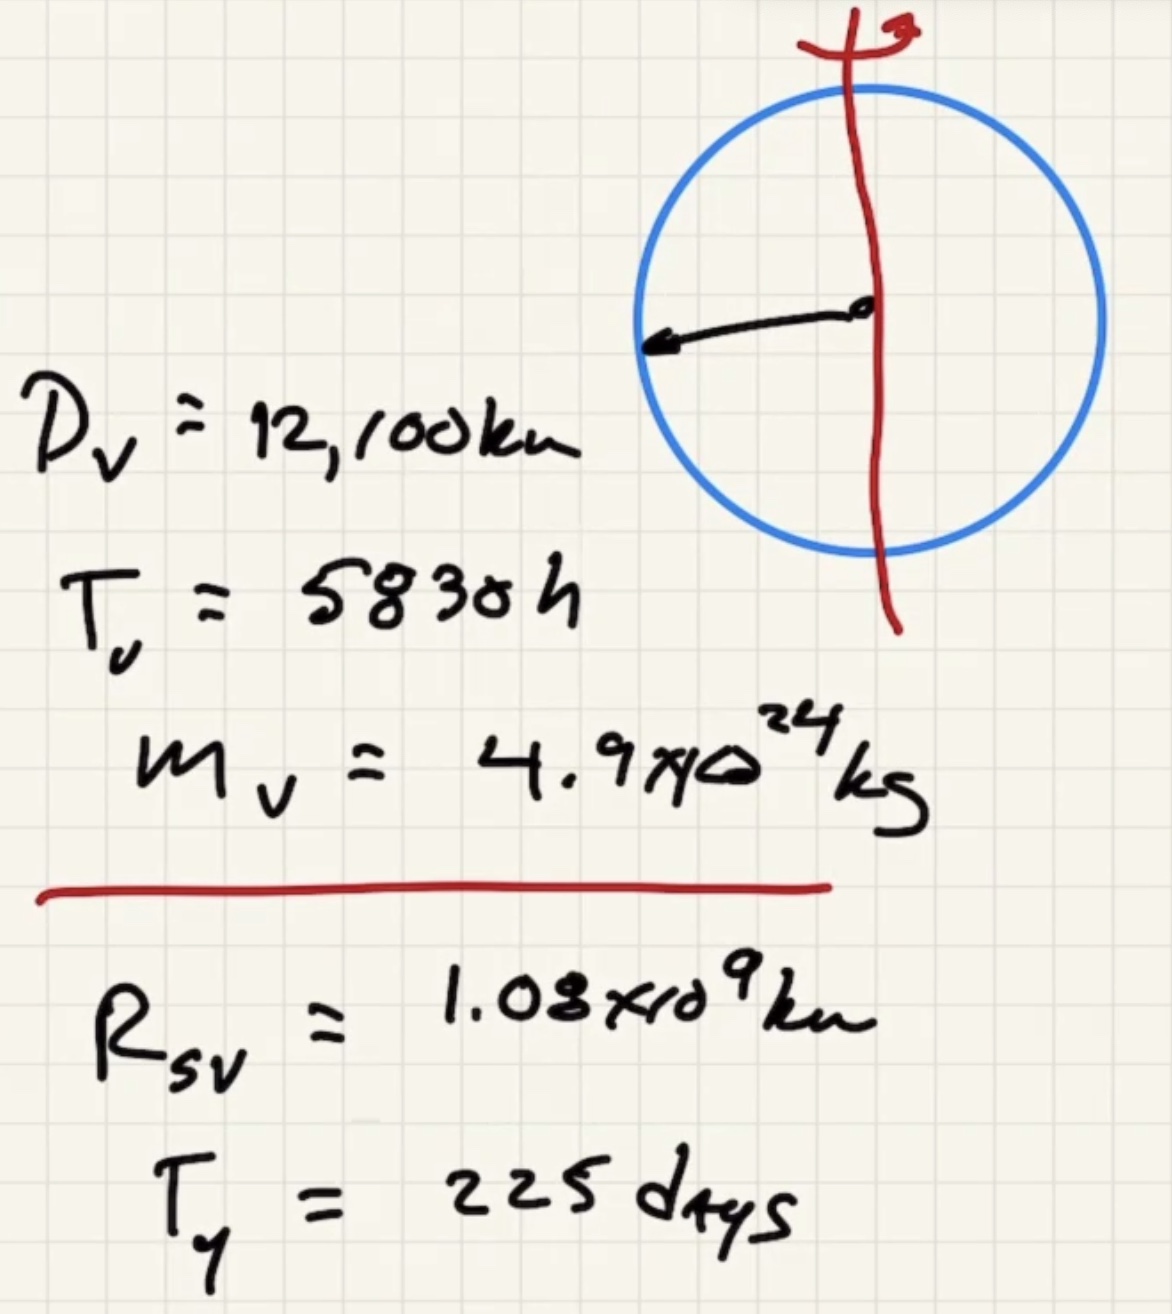 D_v = 12,100km
T_v = 5830h
m_v = 4.9x10^24 kg
R_sv = 1.08x10^9 km
T_y = 225 days